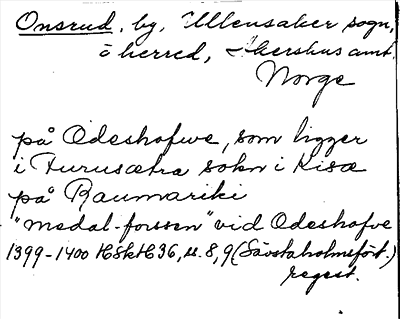 Onsrud, by, Ullensaker sogn,
ö herred, Akershus amt.
Norge
på Ödeshofwe, som ligger
i Furusætra sokn i Kisæ
på Raumariki
"medal-forssen" vid Ödeshofve
1399-1400 HSkH 36, s. 8, 9 (Sävstaholmsfört.)
regest.